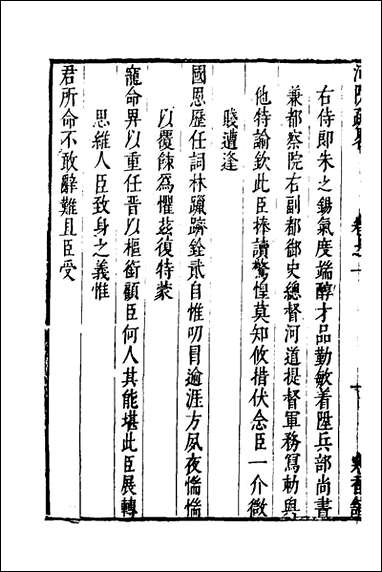 右侍郎朱之錫氣度端醇才品勤敏着陞兵部尚書
兼都察院右副都御史總督河道提督軍務寫勅與
他特諭欽此臣捧讀驚惶莫知攸措伏念臣一介微
賤遭逢
國恩歷任詞林躐躋銓貳自惟叨冒逾涯方夙夜惴惴
以覆餗爲懼茲復特蒙
寵命畀以重任晋以樞銜顧臣何人其能堪此臣展轉
思維人臣致身之義惟
君所命不敢辭難且臣受